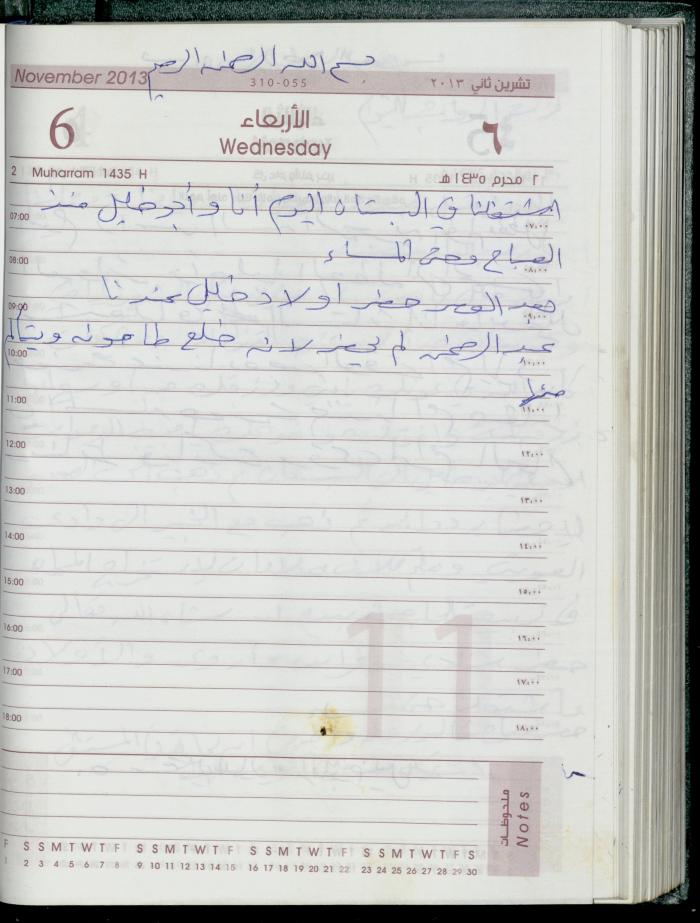 بسم الله الرحمن الرحيم
November 2013
310-055
تشرين ثاني ٢٠١٣
6
الأربعاء
٦
Wednesday
2 Muharram 1435 H
٢ محرم ١٤٣٥ هـ
اشتغلنا في البستان اليوم أنا وأبو خليل منذ
07:00
٠٧،٠٠
الصباح وحتى المساء
08:00
٠٨،٠٠
بعد العصر حضر اولاد خليل عندنا
09:00
٠٩،٠٠
عبد الرحمن لم يحضر لانه خلع طاحونه ويتألم
10:00
١٠،٠٠
منها
11:00
١١،٠٠
12:00
١٢،٠٠
13:00
١٣،٠٠
14:00
١٤،٠٠
15:00
١٥،٠٠
16:00
١٦،٠٠
17:00
١٧،٠٠
18:00
١٨،٠٠
11
ملحوظات
Notes
F S S M T W T F S S M T W T F S S M T W T F S S M T W T F S
1 2 3 4 5 6 7 8 9 10 11 12 13 14 15 16 17 18 19 20 21 22 23 24 25 26 27 28 29 30